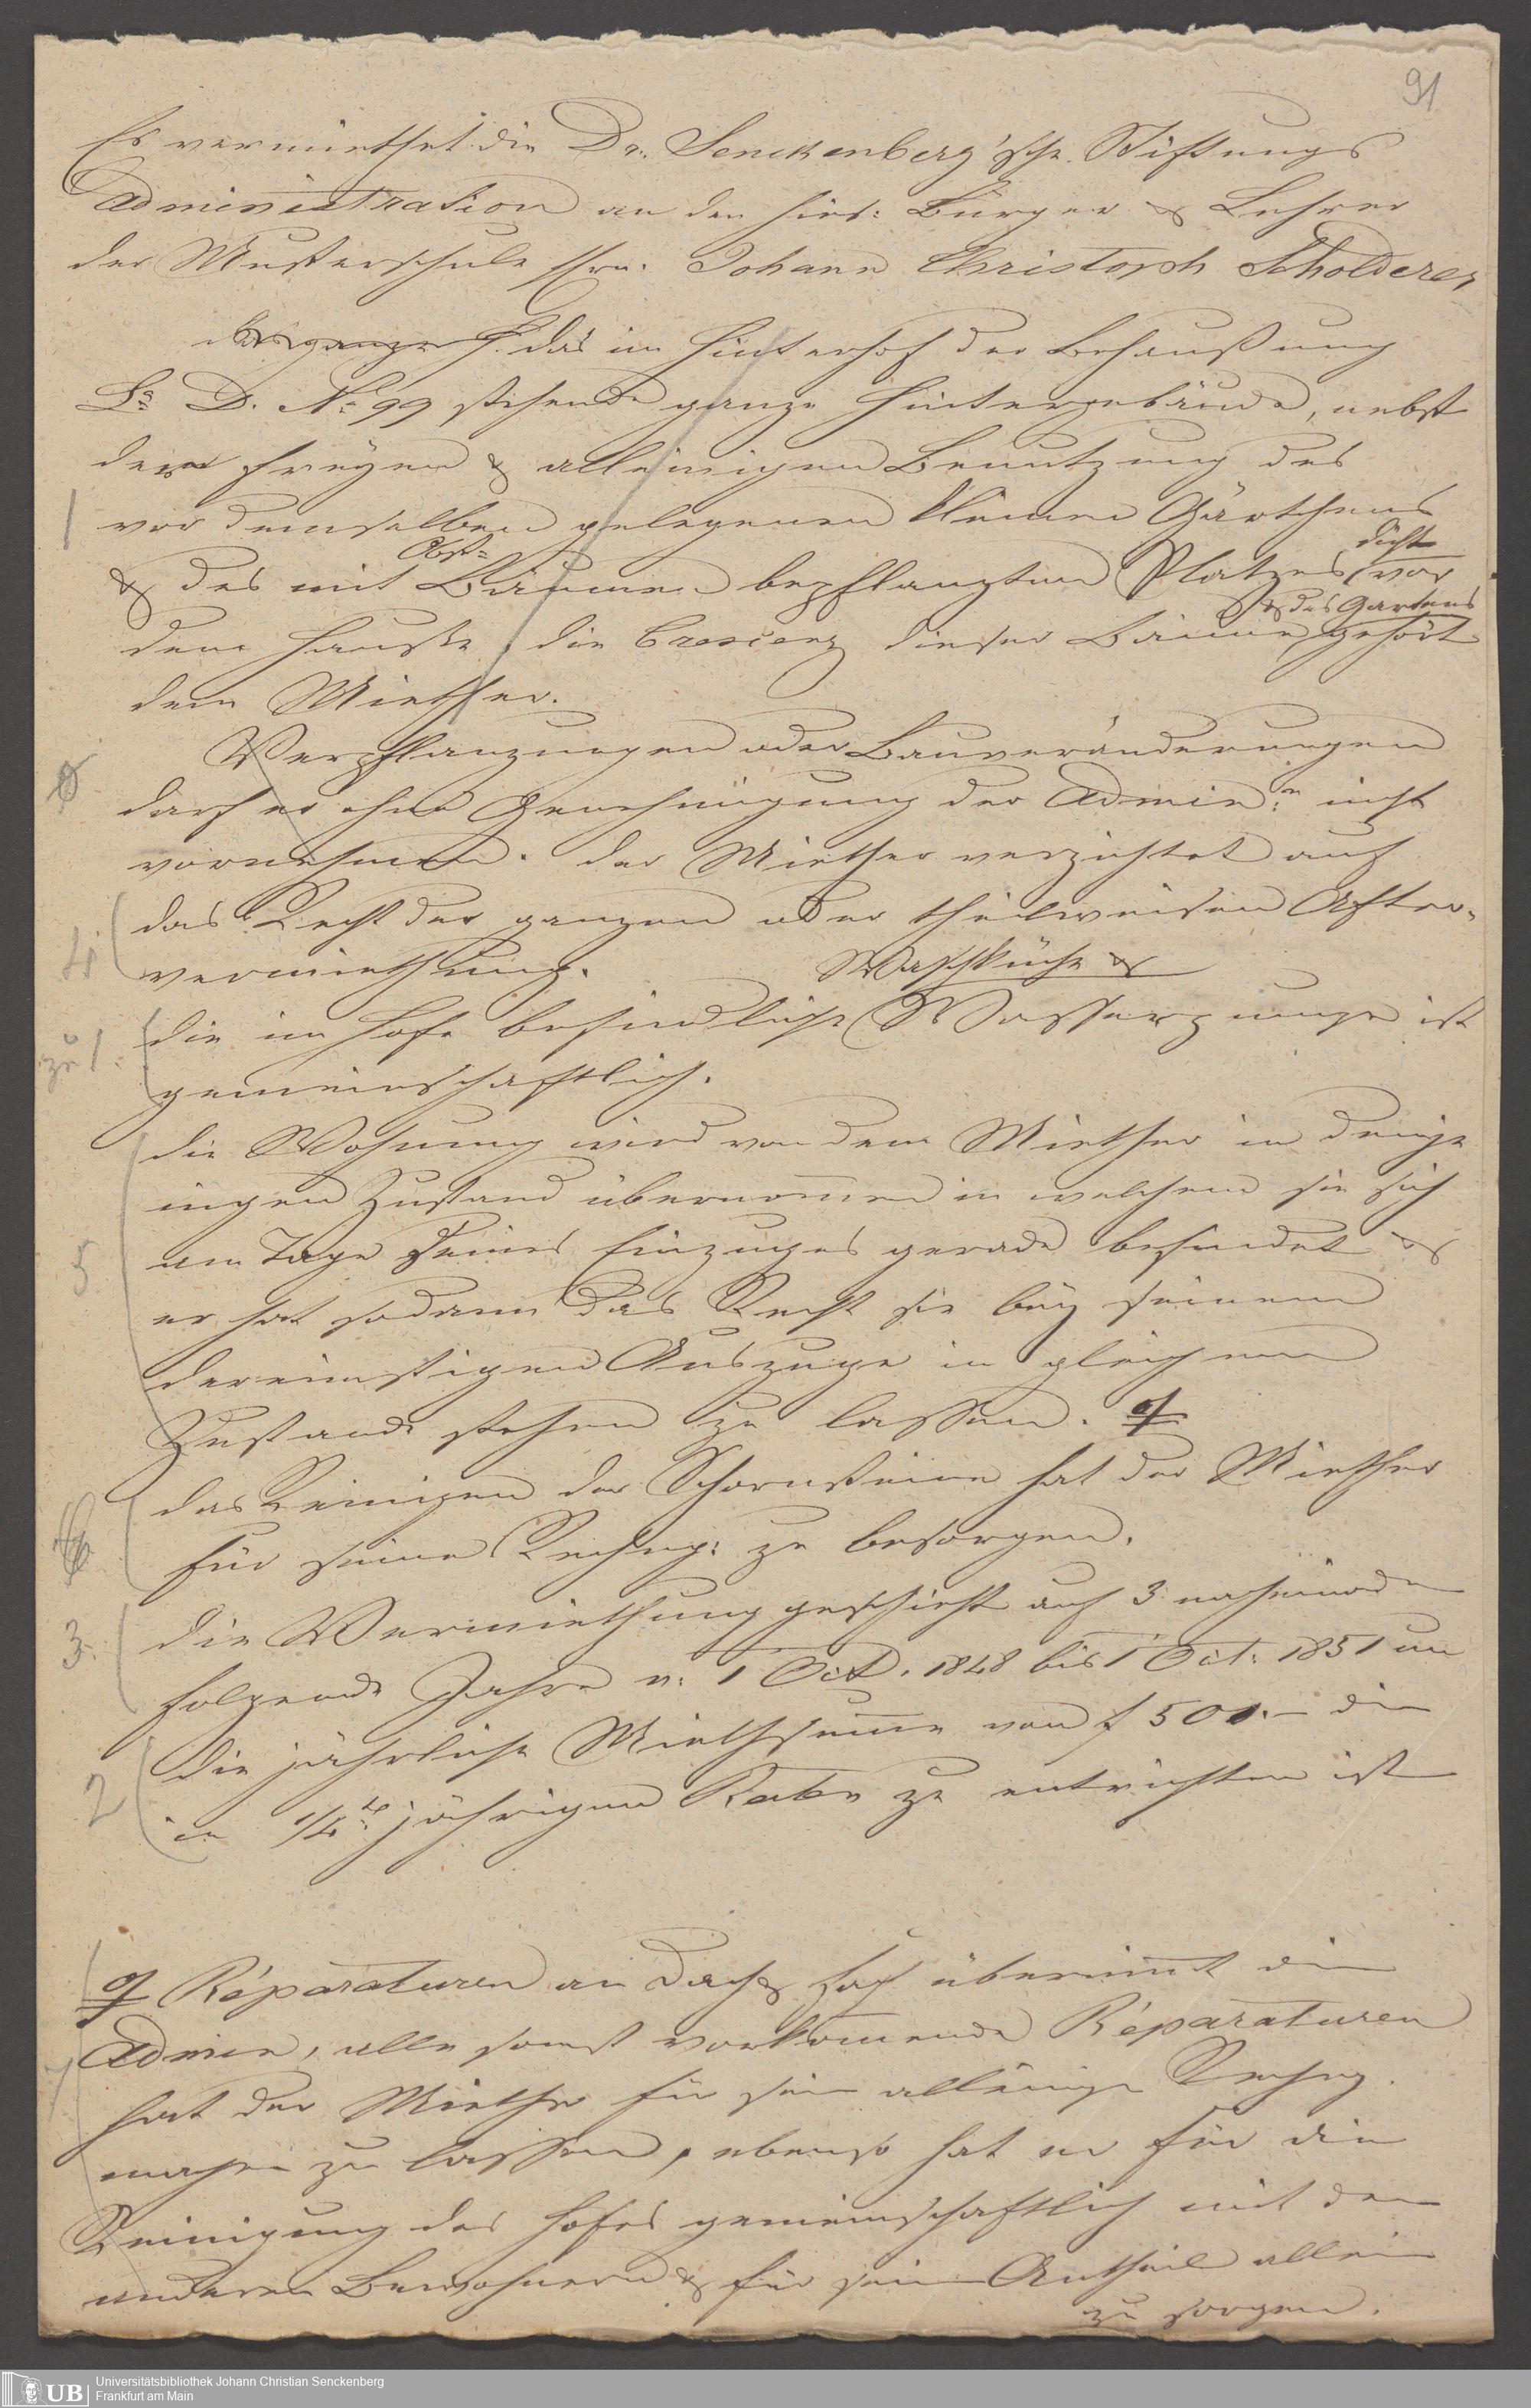 91
Es vermiethet die Dr. Senckenberg'sche Stiftungs
Administration an den hies: Bürger & Lehrer
der Musterschule Hrn. Johann Christoph Scholderer
das ganze H. das im Hinterhof der Behaußung
La D. No 99 stehende ganze Hintergebäude, nebst
der freyen & alleinigen Benutzung des
1 vor demselben gelegenen kleinen Gärtchens
Obst= dicht
& des mit Bäumen bepflanzten Platzes vor
& des Gartens
dem Hauße, die Crescenz dieser Bäume gehört
dem Miether.
Verpflanzungen oder Bauveränderungen
darf er ohne Genehmigung der Admin:n nicht
vornehmen. Der Miether verzichtet auf
das Recht der ganzen oder theilweisen After-
4. vermiethung. Waschküche &
die im Hofe befindliche Wasserpumpe ist
zu 1. gemeinschaftlich.
die Wohnung wird von dem Miether in denje
nigen Zustand übernommen in welchem sie sich
5 am Tage seines Einzuges gerade befindet &
er hat sodann das Recht sie bey seinem
dereinstigen Auszuge in gleichem
Zustande stehen zu lassen.
das Reinigen der Schornsteine hat der Miether
6 für seine Rechng: zu besorgen.
3. die Vermiethung geschieht auf 3 nacheinander
folgende Jahre v. 1 Oct. 1848 bis 1 Oct. 1851 um
die jährliche Miethsumme von f 500.– die
2 in 1/4te jährigen Raten zu entrichten ist
Réparaturen an Dach & Fach übernimmt die
Admin, alle sonst vorkommende Réparaturen
hat der Miether für seine alleinige Rechng.
machen zu lassen, ebenso hat er für die
Reinigung des Hofes gemeinschaftlich mit den
anderen Bewohnern & für seinen Antheil allein
zu sorgen.
UB
Universitätsbibliothek Johann Christian Senckenberg
Frankfurt am Main